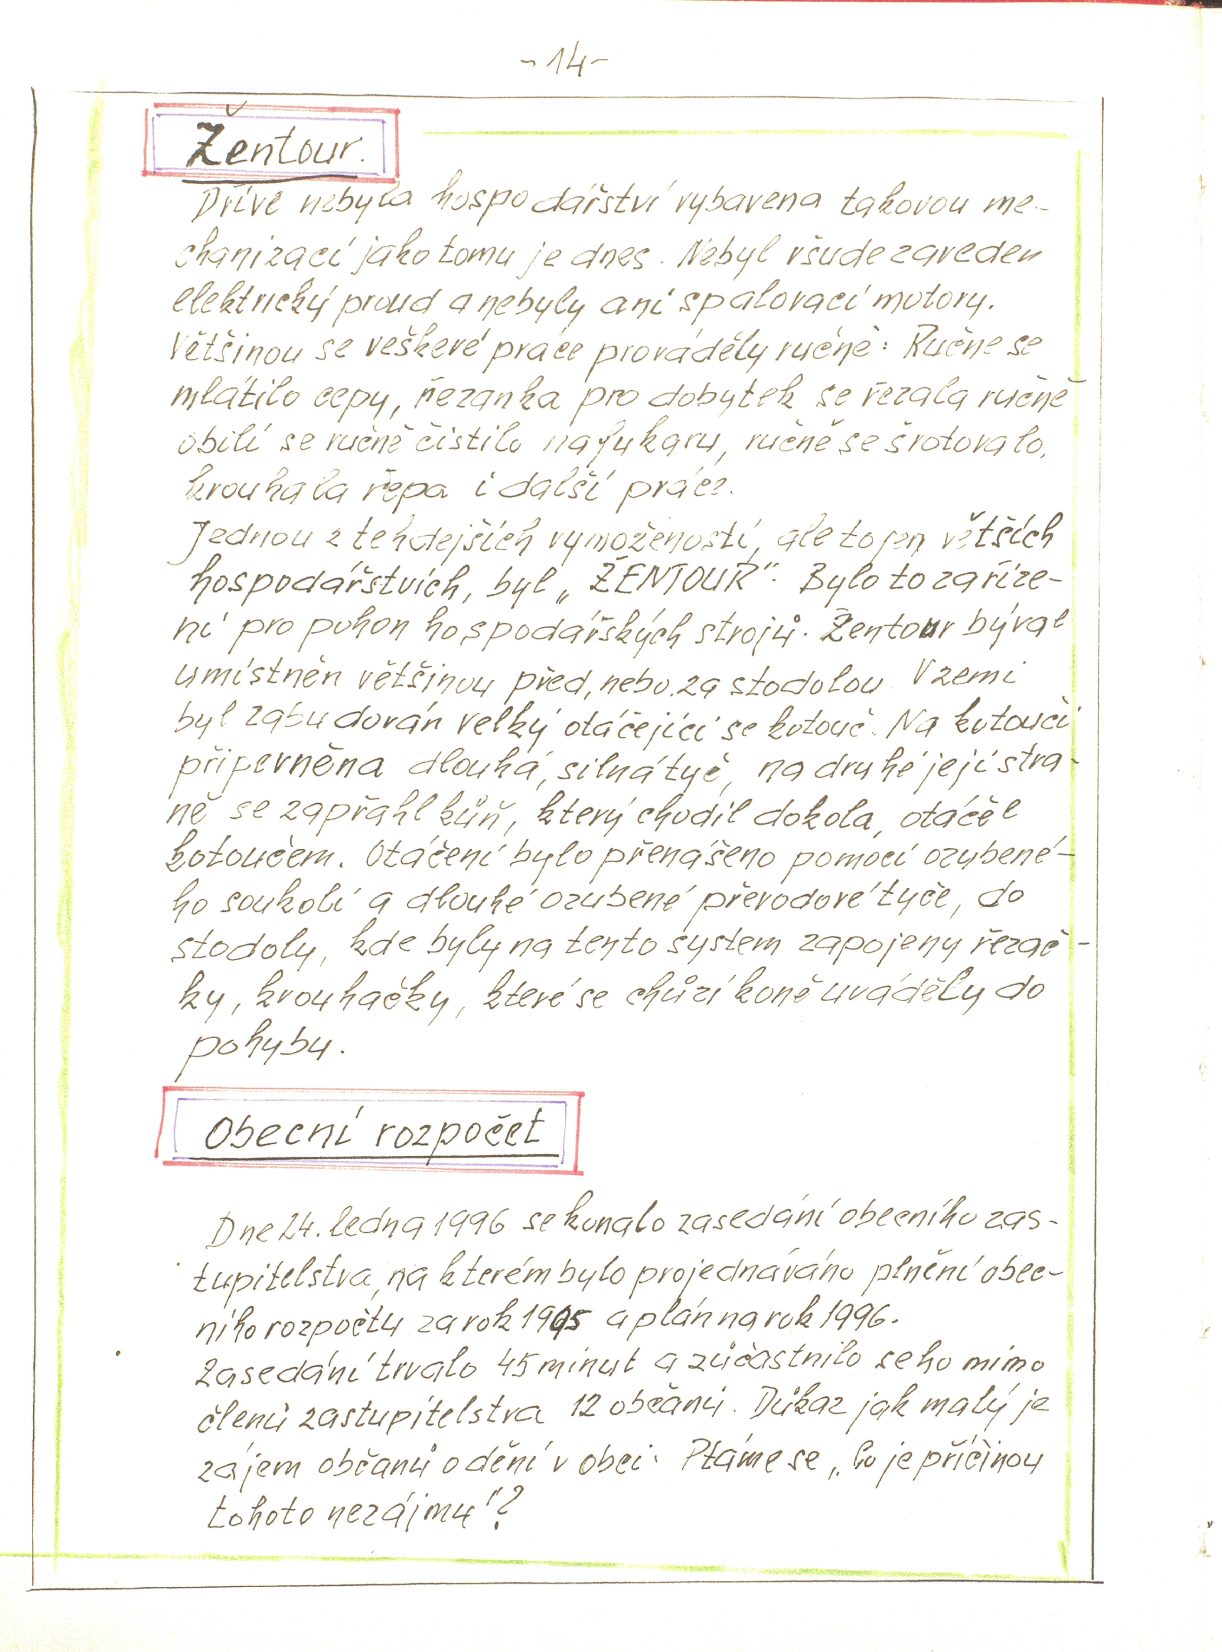 -14-
Žentour.
Dříve nebyla hospodářství vybavena takovou me-
chanizací jako tomu je dnes. Nebyl všude zaveden
elektrický proud a nebyly ani spalovací motory.
Většinou se veškeré práce prováděly ručně: Ručně se
mlátilo cepy, řezanka pro dobytek se řezala ručně
obilí se ručně čistilo na fukaru, ručně se šrotovalo,
krouhala řepa i další práce.
Jednou z tehdejších vymožeností, ale to jen větších
hospodářstvích, byl „ŽENTOUR". Bylo to zaříze-
ní pro pohon hospodářských strojů. Žentour býval
umístněn většinou před, nebo za stodolou. V zemi
byl zabudován velký otáčející se kotouč. Na kotouči
připevněna dlouhá, silná tyč, na druhé její stra-
ně se zapřáhl kůň, který chodil dokola, otáčel
kotoučem. Otáčení bylo přenášeno pomocí ozubené-
ho soukolí a dlouhé ozubené převodové tyče, do
stodoly, kde byly na tento system zapojeny řezač-
ky, krouhačky, které se chůzí koně uváděly do
pohybu.
Obecní rozpočet
Dne 24. ledna 1996 se konalo zasedání obecního zas-
tupitelstva, na kterém bylo projednáváno plnění obec-
ního rozpočtu za rok 1995 a plán na rok 1996.
Zasedání trvalo 45 minut a zúčastnilo se ho mimo
členů zastupitelstva 12 občanů. Důkaz jak malý je
zájem občanů o dění v obci. Ptáme se „Co je příčinou
tohoto nezájmu"?